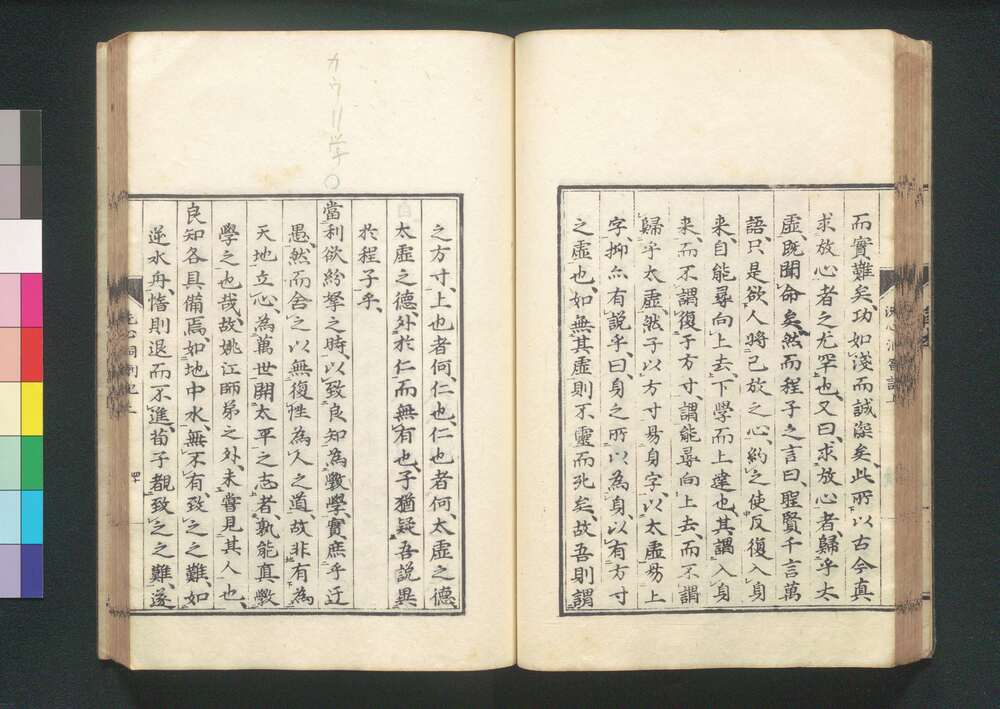 而實難矣、功如淺而誠深矣、此所以古今真
求放心者之尤罕也、又曰、求放心者、歸乎太
虛、既聞命矣、然而程子之言曰、聖賢千言萬
語、只是欲人將已放之心、約之使反復入身
來、自能尋向上去、下學而上達也、其謂入身
來、而不謂復于方寸、謂能尋向上去、而不謂
歸乎太虛、然子以方寸易身字、以太虛易上
字、抑亦有說乎、曰、身之所以為身、以有方寸
之虛也、如無其虛、則不靈而死矣、故吾則謂
カウリ学〇
之方寸、上也者何、仁也、仁也者何、太虛之德、
太虛之德、外於仁而無有也、子猶疑吾說異
於程子乎、
當利欲紛拏之時、以致良知為教學、實庶乎迂
愚、然而舍之以無復性為人之道、故非有為
天地立心、為萬世開太平之志者、孰能真教
學之也哉、故姚江師弟之外、未嘗見其人也、
良知各具備焉、如地中水、無不有、致之之難、如
逆水舟、惰則退而不進、荀子覩致之之難、遂
洗心洞劄記上
四十